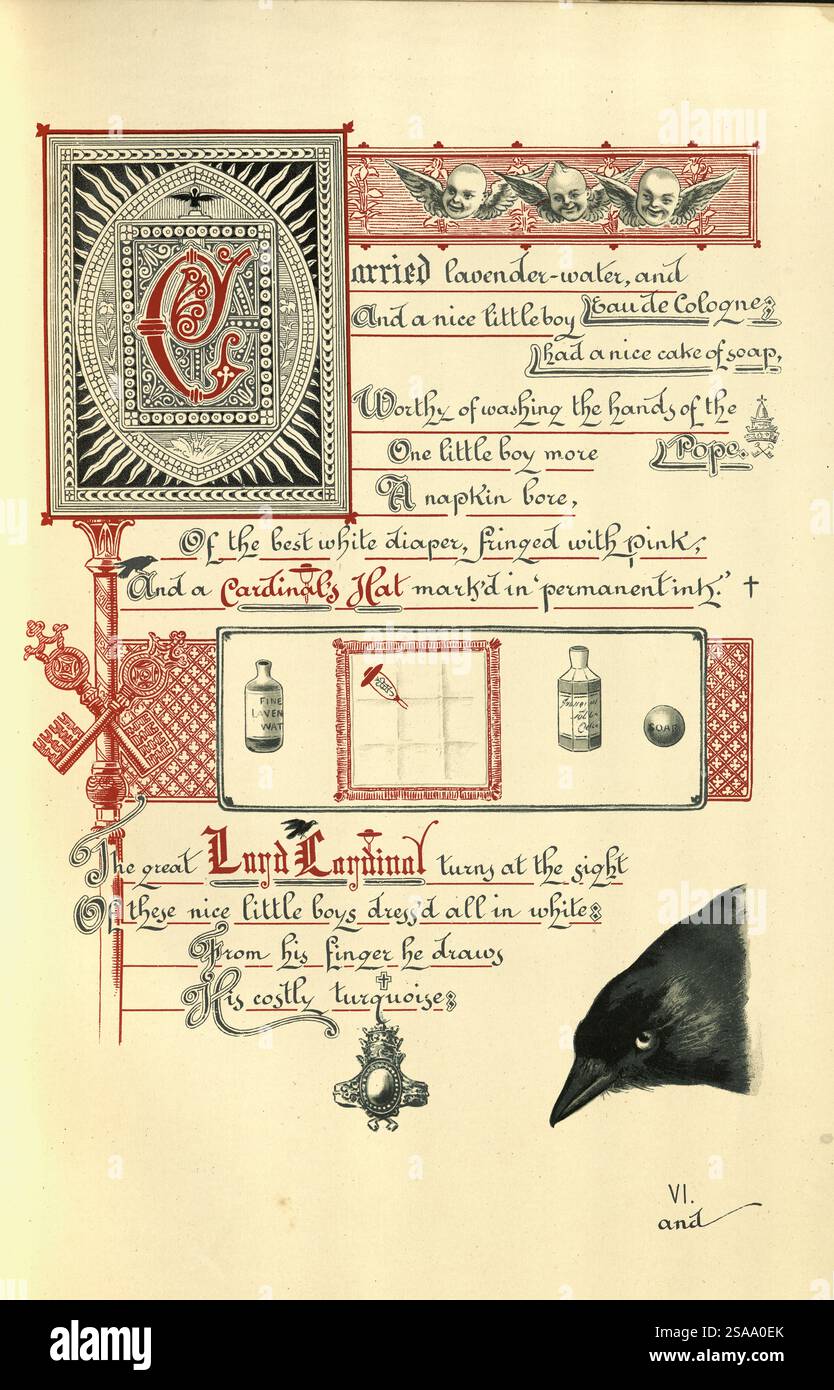 Carried lavender-water, and
Eau de Cologne;
And a nice little boy
had a nice cake of soap,
Worthy of washing the hands of the
Pope.
One little boy more
A napkin bore,
Of the best white diaper, fringed with pink,
And a Cardinal's Hat mark'd in "permanent ink."
FINE
LAVEN
WAT
SOAP
The great Lord Cardinal turns at the sight
Of these nice little boys dress'd all in white:
From his finger he draws
His costly turquoise:
VI.
and
alamy
alamy
Image ID: 2SAA0EK
www.alamy.com